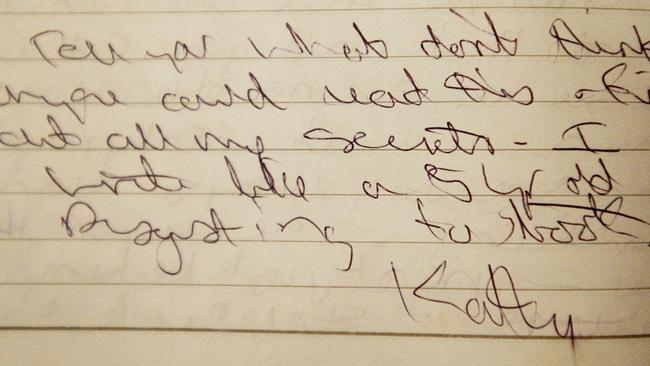 Tell you what don't think
anyone could read this & find
out all my secrets - I
write like a 5 yr old
Disgusting to look
Kathy